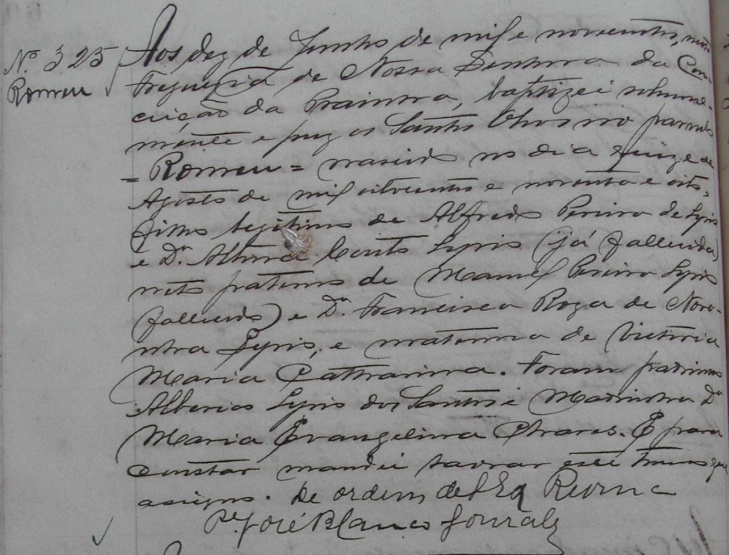 Nº 325
Romeu
Aos dez de Junho de mil e novecentos, nesta
Freguezia de Nossa Senhora da Con-
ceição da Prainha, baptizei solemne-
mente e puz os Santos Oleos no parvulo
= Romeu = nascido no dia quinze de
Agosto de mil oitocentos e noventa e oito,
filho legitimo de Alfredo Pereira de Lyris
e Dª Couto Lyris (já fallecida)
neto paterno de Manoel Pereira Lyris
(fallecido) e Dª Francisca Roza de Noro-
nha Lyris, e materno de Victoria
Maria Catharina. Foram padrinhos
Lyris dos Santos e Madrinha Dª
Maria Evangelina Chaves. E para
constar mandei lavrar este termo que
assigno. De ordem de S. Ex Revma
Pe. José Blanco Gonzalz